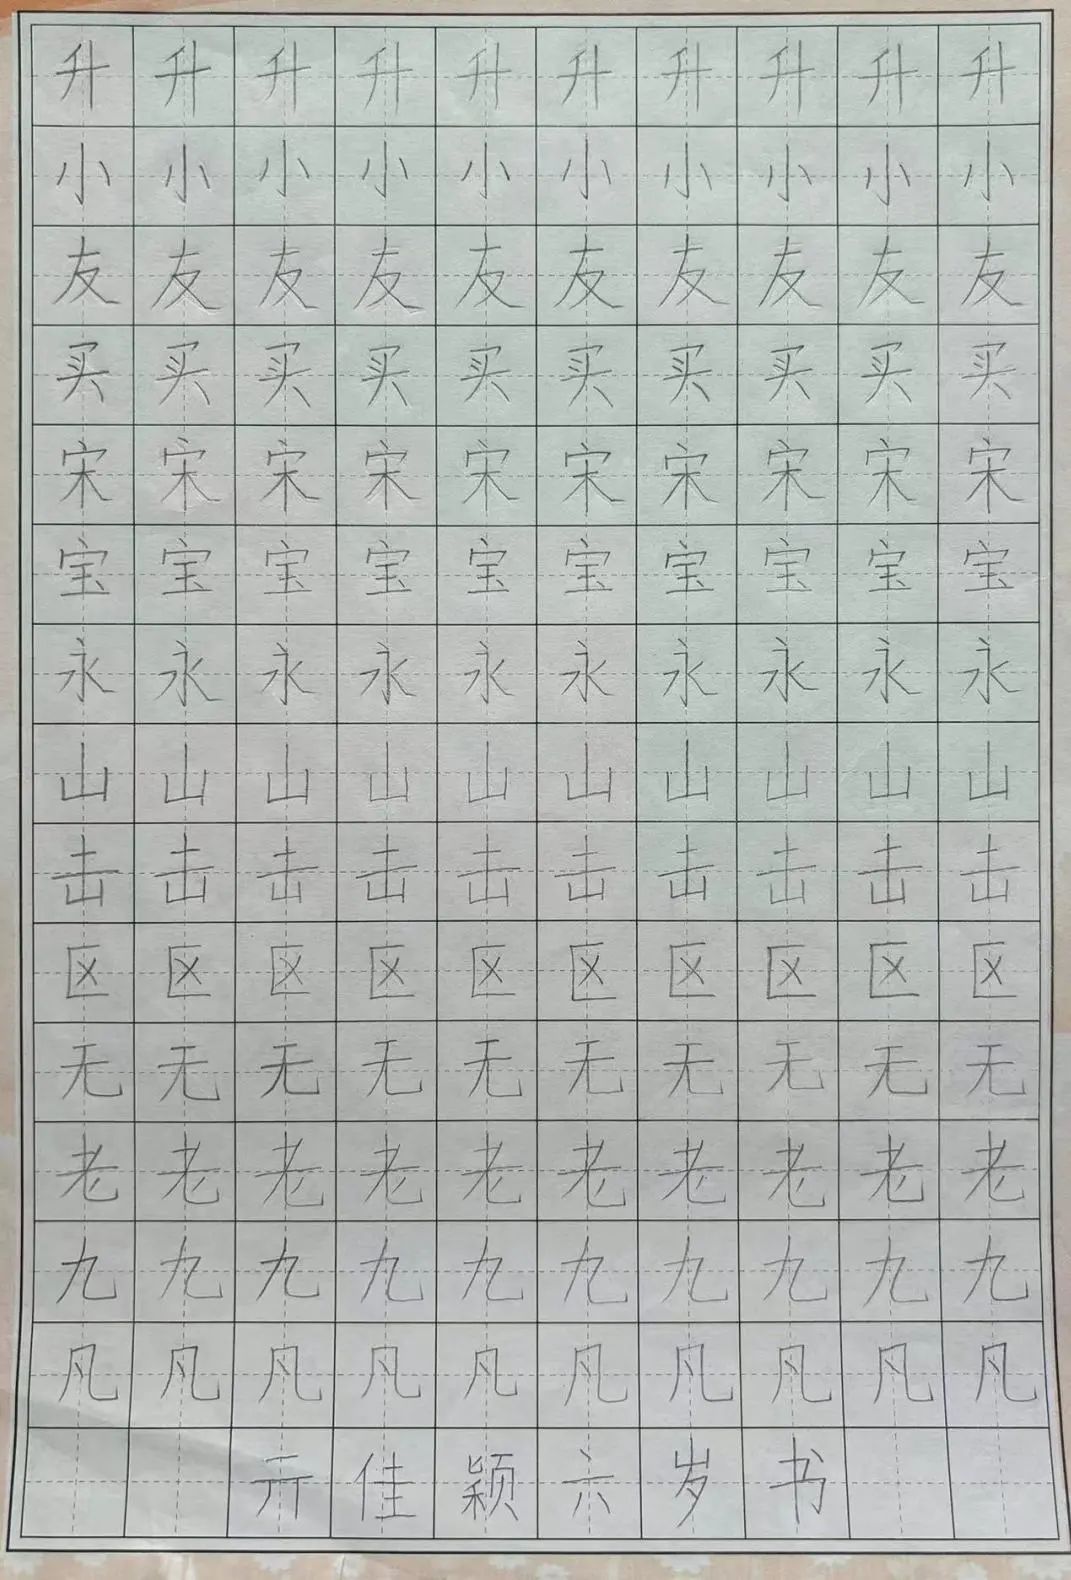 升升升升升升升升升升
小小小小小小小小小小
友友友友友友友友友友
买买买买买买买买买买
宋宋宋宋宋宋宋宋宋宋
宝宝宝宝宝宝宝宝宝宝
永永永永永永永永永永
山山山山山山山山山山
击击击击击击击击击击
区区区区区区区区区区
无无无无无无无无无无
老老老老老老老老老老
九九九九九九九九九九
凡凡凡凡凡凡凡凡凡凡
亓佳颖六岁书